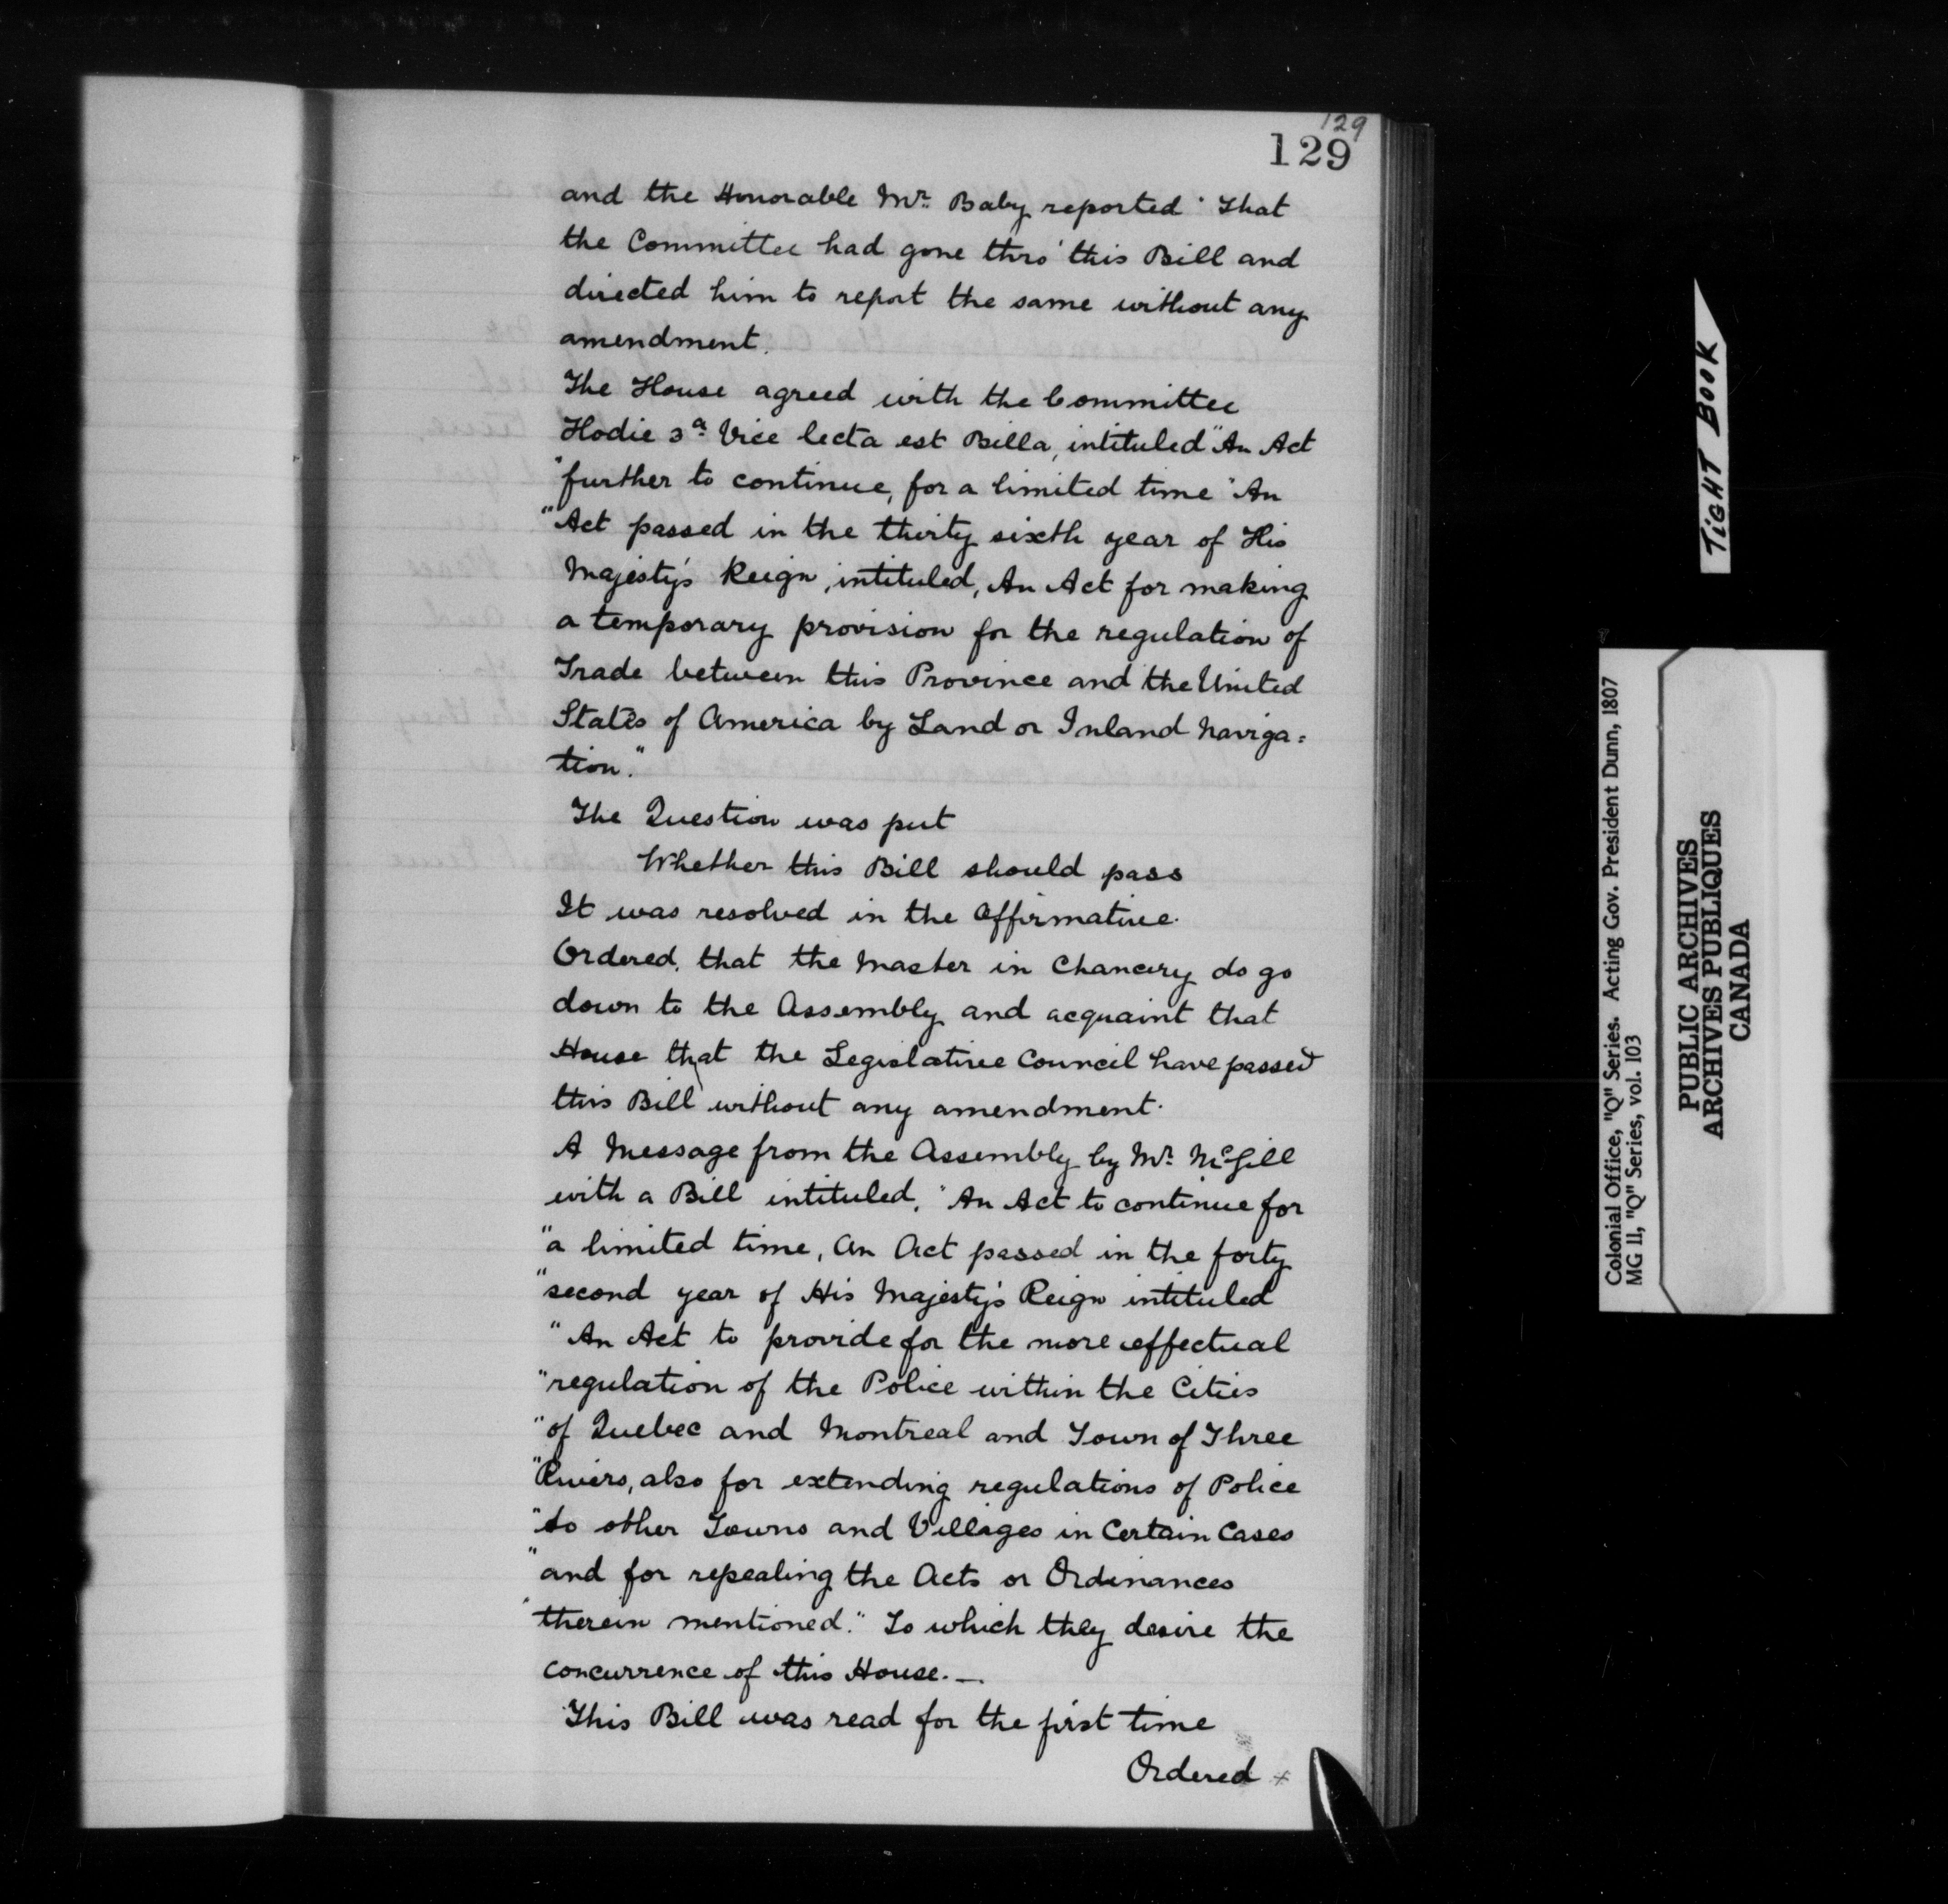 129
129
and the Honorable Mr. Baby reported "That
the Committee had gone thro' this Bill and
directed him to report the same without any
amendment.
The House agreed with the Committee
Hodie 3a. Vice lecta est Billa, intituled "An Act
"further to continue, for a limited time "An
"Act passed in the thirty sixth year of His
Majesty's Reign, intituled, An Act for making
a temporary provision for the regulation of
Trade between this Province and the United
States of America by Land or Inland Naviga=
tion."
The Question was put
Whether this Bill should pass
It was resolved in the affirmative.
Ordered, that the Master in Chancery do go
down to the Assembly and acquaint that
House that the Legislative Council have passed
this Bill without any amendment.
A Message from the Assembly by Mr. McGill
with a Bill intituled, "An Act to continue for
"a limited time, An Act passed in the forty
"second year of His Majesty's Reign intituled
"An Act to provide for the more effectual
"regulation of the Police within the Cities
"of Quebec and Montreal and Town of Three
"Rivers, also for extending regulations of Police
"to other Towns and Villages in Certain Cases
"and for repealing the Acts or Ordinances
"therein mentioned." To which they desire the
concurrence of this House.—
This Bill was read for the first time
Ordered +
TIGHT BOOK
Colonial Office, "Q" Series. Acting Gov. President Dunn, 1807
MG 11, "Q" Series, vol. 103
PUBLIC ARCHIVES
ARCHIVES PUBLIQUES
CANADA